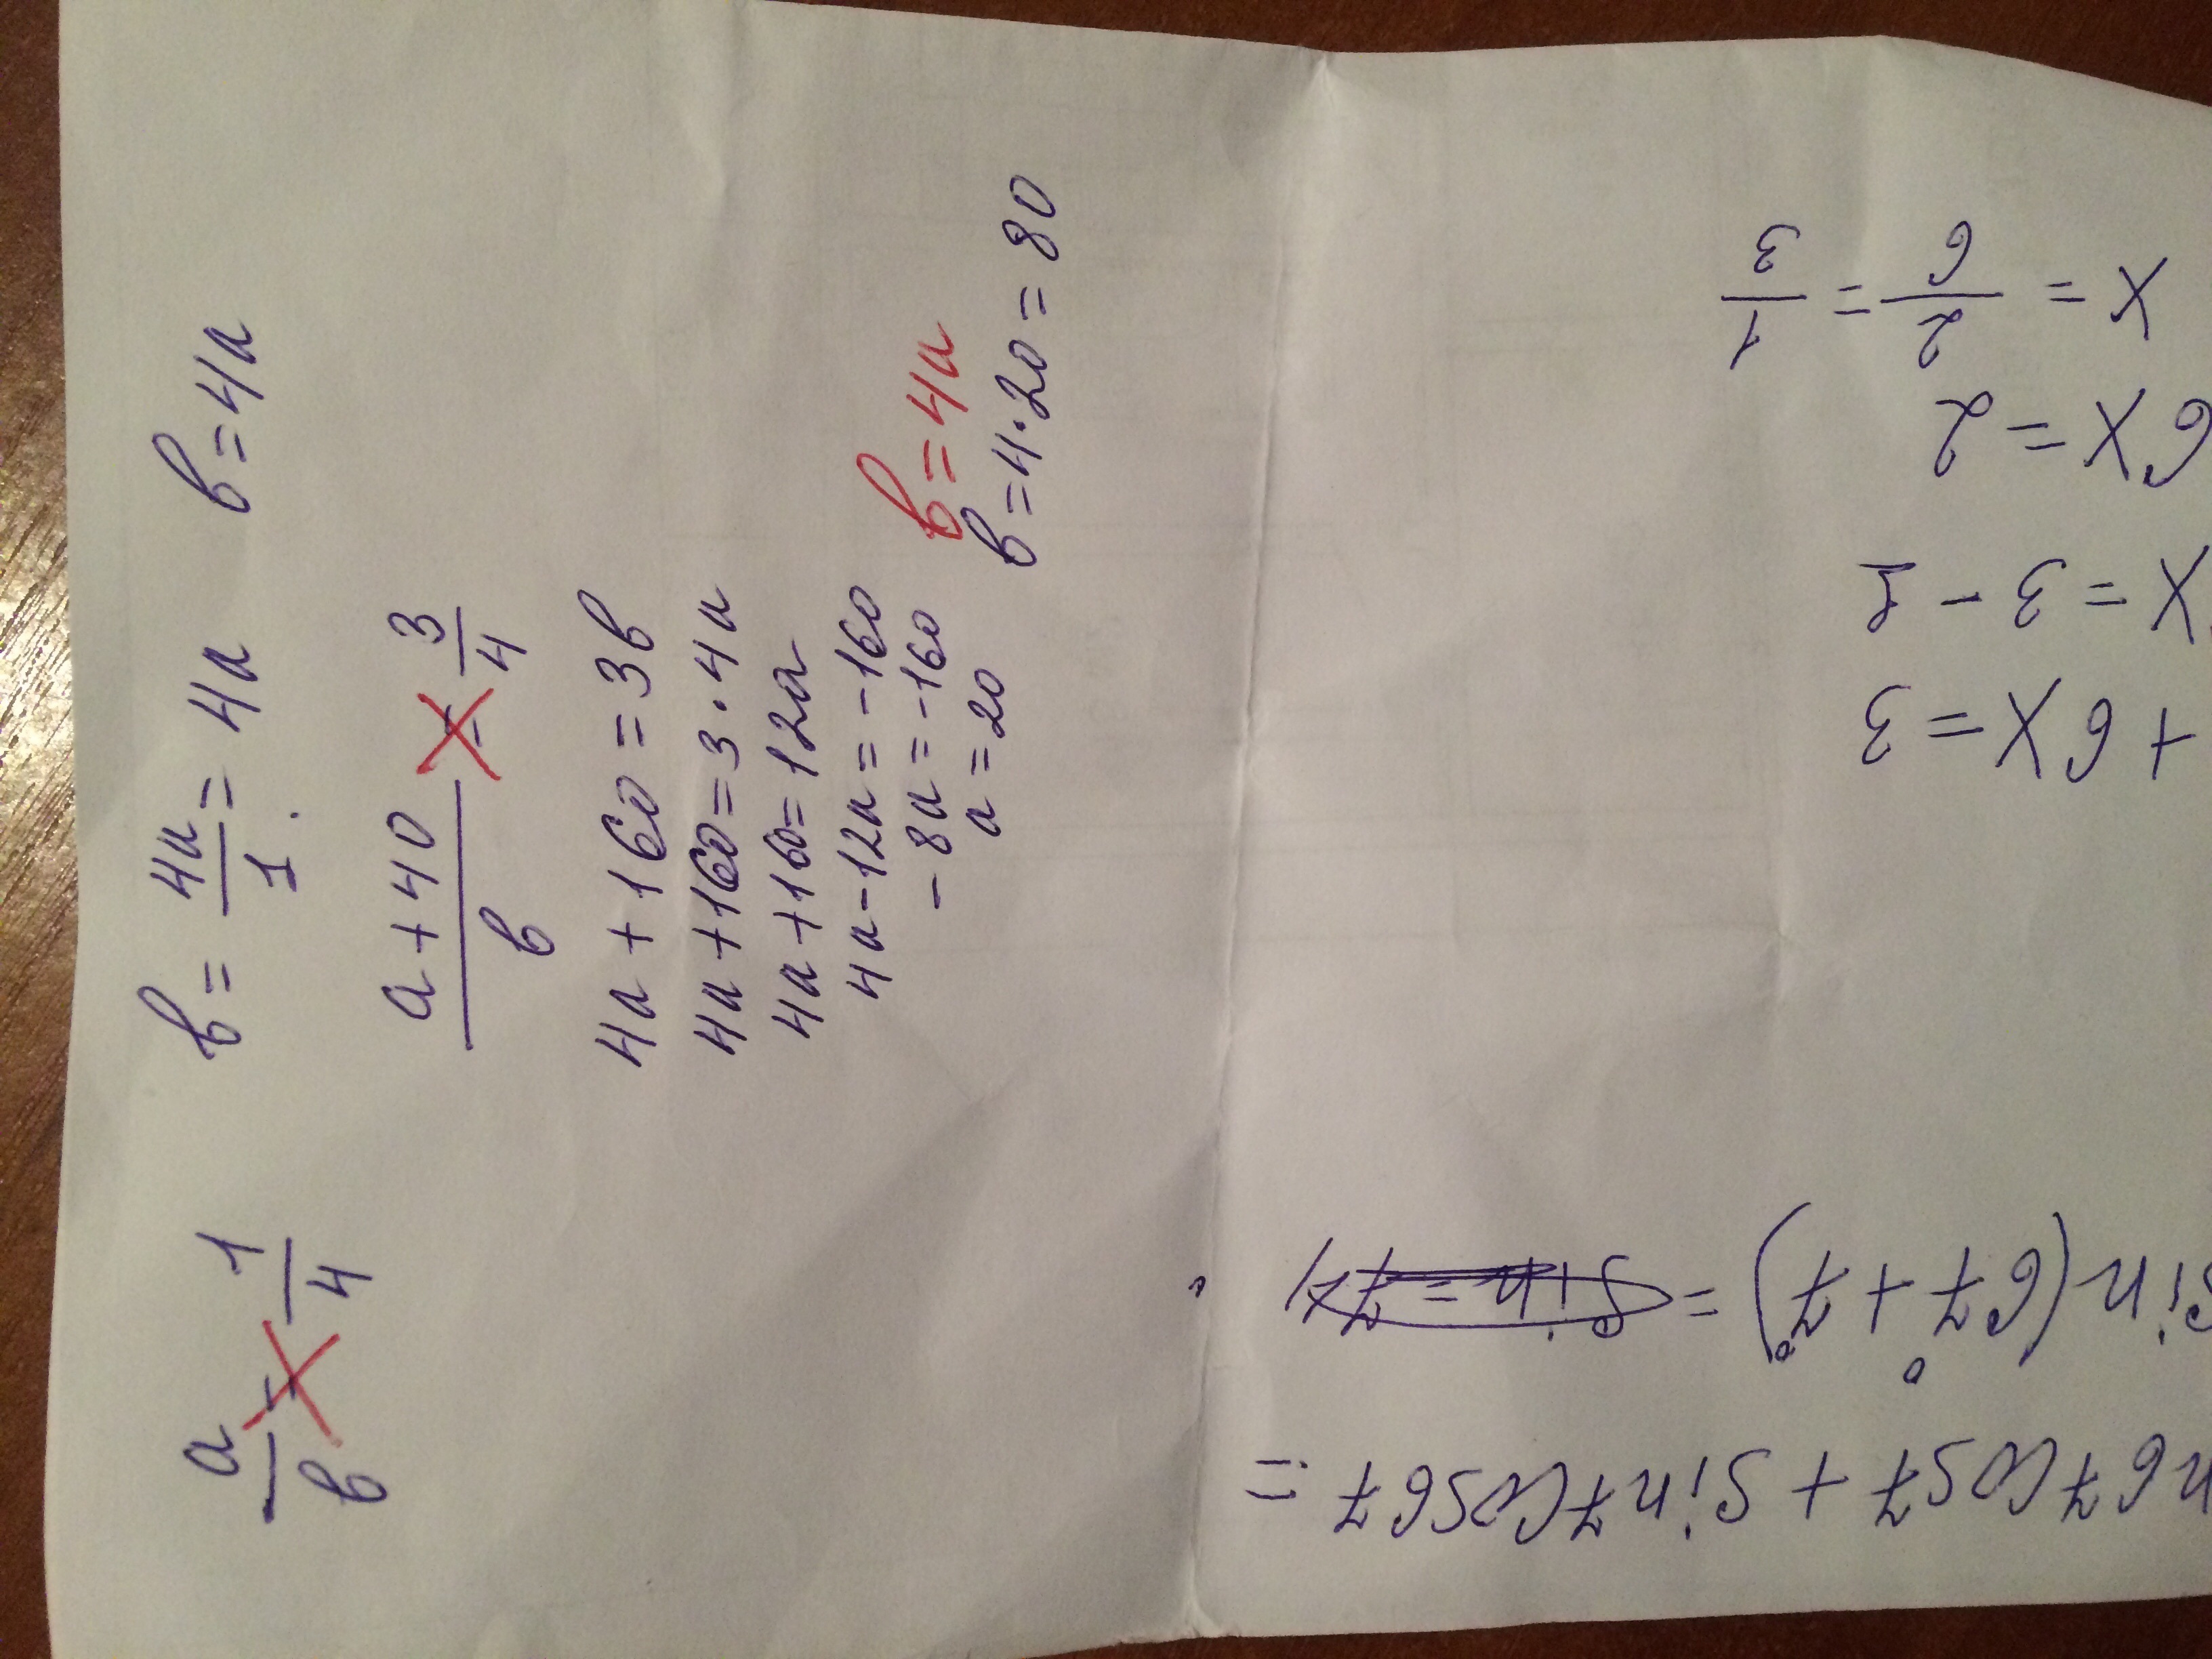 a/в = 1/4
в = 4a/1 = 4a в = 4a
(a + 40)/в = 3/4
4a + 160 = 3в
4a + 160 = 3 · 4a
4a + 160 = 12a
4a - 12a = -160
-8a = -160
a = 20
в = 4a
в = 4 · 20 = 80
n67cos7 + sin7cos67 =
sin(67° + 7°) =
+ 6x = 3
x = 3 - 1
6x = 2
x = 2/6 = 1/3